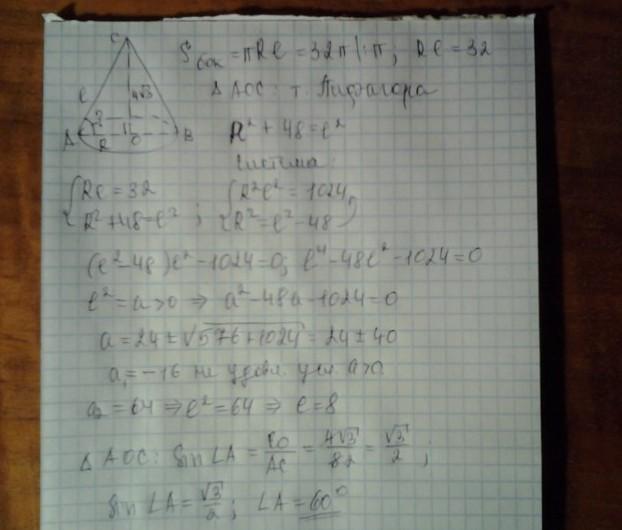 C
l
4√3
?
A
R
O
B
Sбок = πRl = 32π |:π; Rl = 32
Δ AOC: т. Пифагора
R² + 48 = l²
Система:
{ Rl = 32
R² + 48 = l² ;
{ R²l² = 1024,
R² = l² - 48
(l² - 48)l² - 1024 = 0; l⁴ - 48l² - 1024 = 0
l² = a > 0 ⇒ a² - 48a - 1024 = 0
a = 24 ± √576 + 1024 = 24 ± 40
a₁ = -16 не удовл. усл. a>0
a₂ = 64 ⇒ l² = 64 ⇒ l = 8
Δ AOC: Sin ∠A = CO/AC = 4√3/8 = √3/2 ;
Sin ∠A = √3/2 ; ∠A = 60°